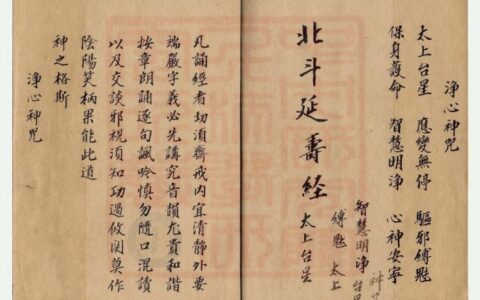 淨心神咒
太上台星 應變無停 驅邪縛魅
保身護命 智慧明淨 心神安寧
神咒
智慧明淨 台星
縛魅 太上
北斗延壽经 太上台星
凡誦經者切須齋戒内宜清静外要
端嚴字義必先講究音韻尤貴和諧
按章朗誦逐句諷吟慎勿隨口混讀
以及交談邪視須知功過攸関莫作
陰陽笑柄果能此道
神之格斯
淨心神咒